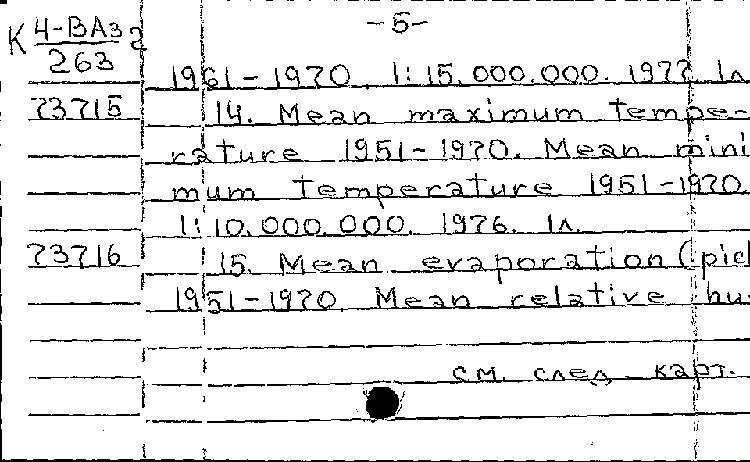 -5-
К 4-ВАз2
263
1961-1970. 1:15.000.000. 1977 1л
73715 14. Mean maximum tempe-
rature 1951-1970. Mean mini
mum temperature 1951-1970.
1:10.000.000. 1976. 1л.
73716 15. Mean evaporation (pich
1951-1970. Mean relative hu-
см. след. карт.